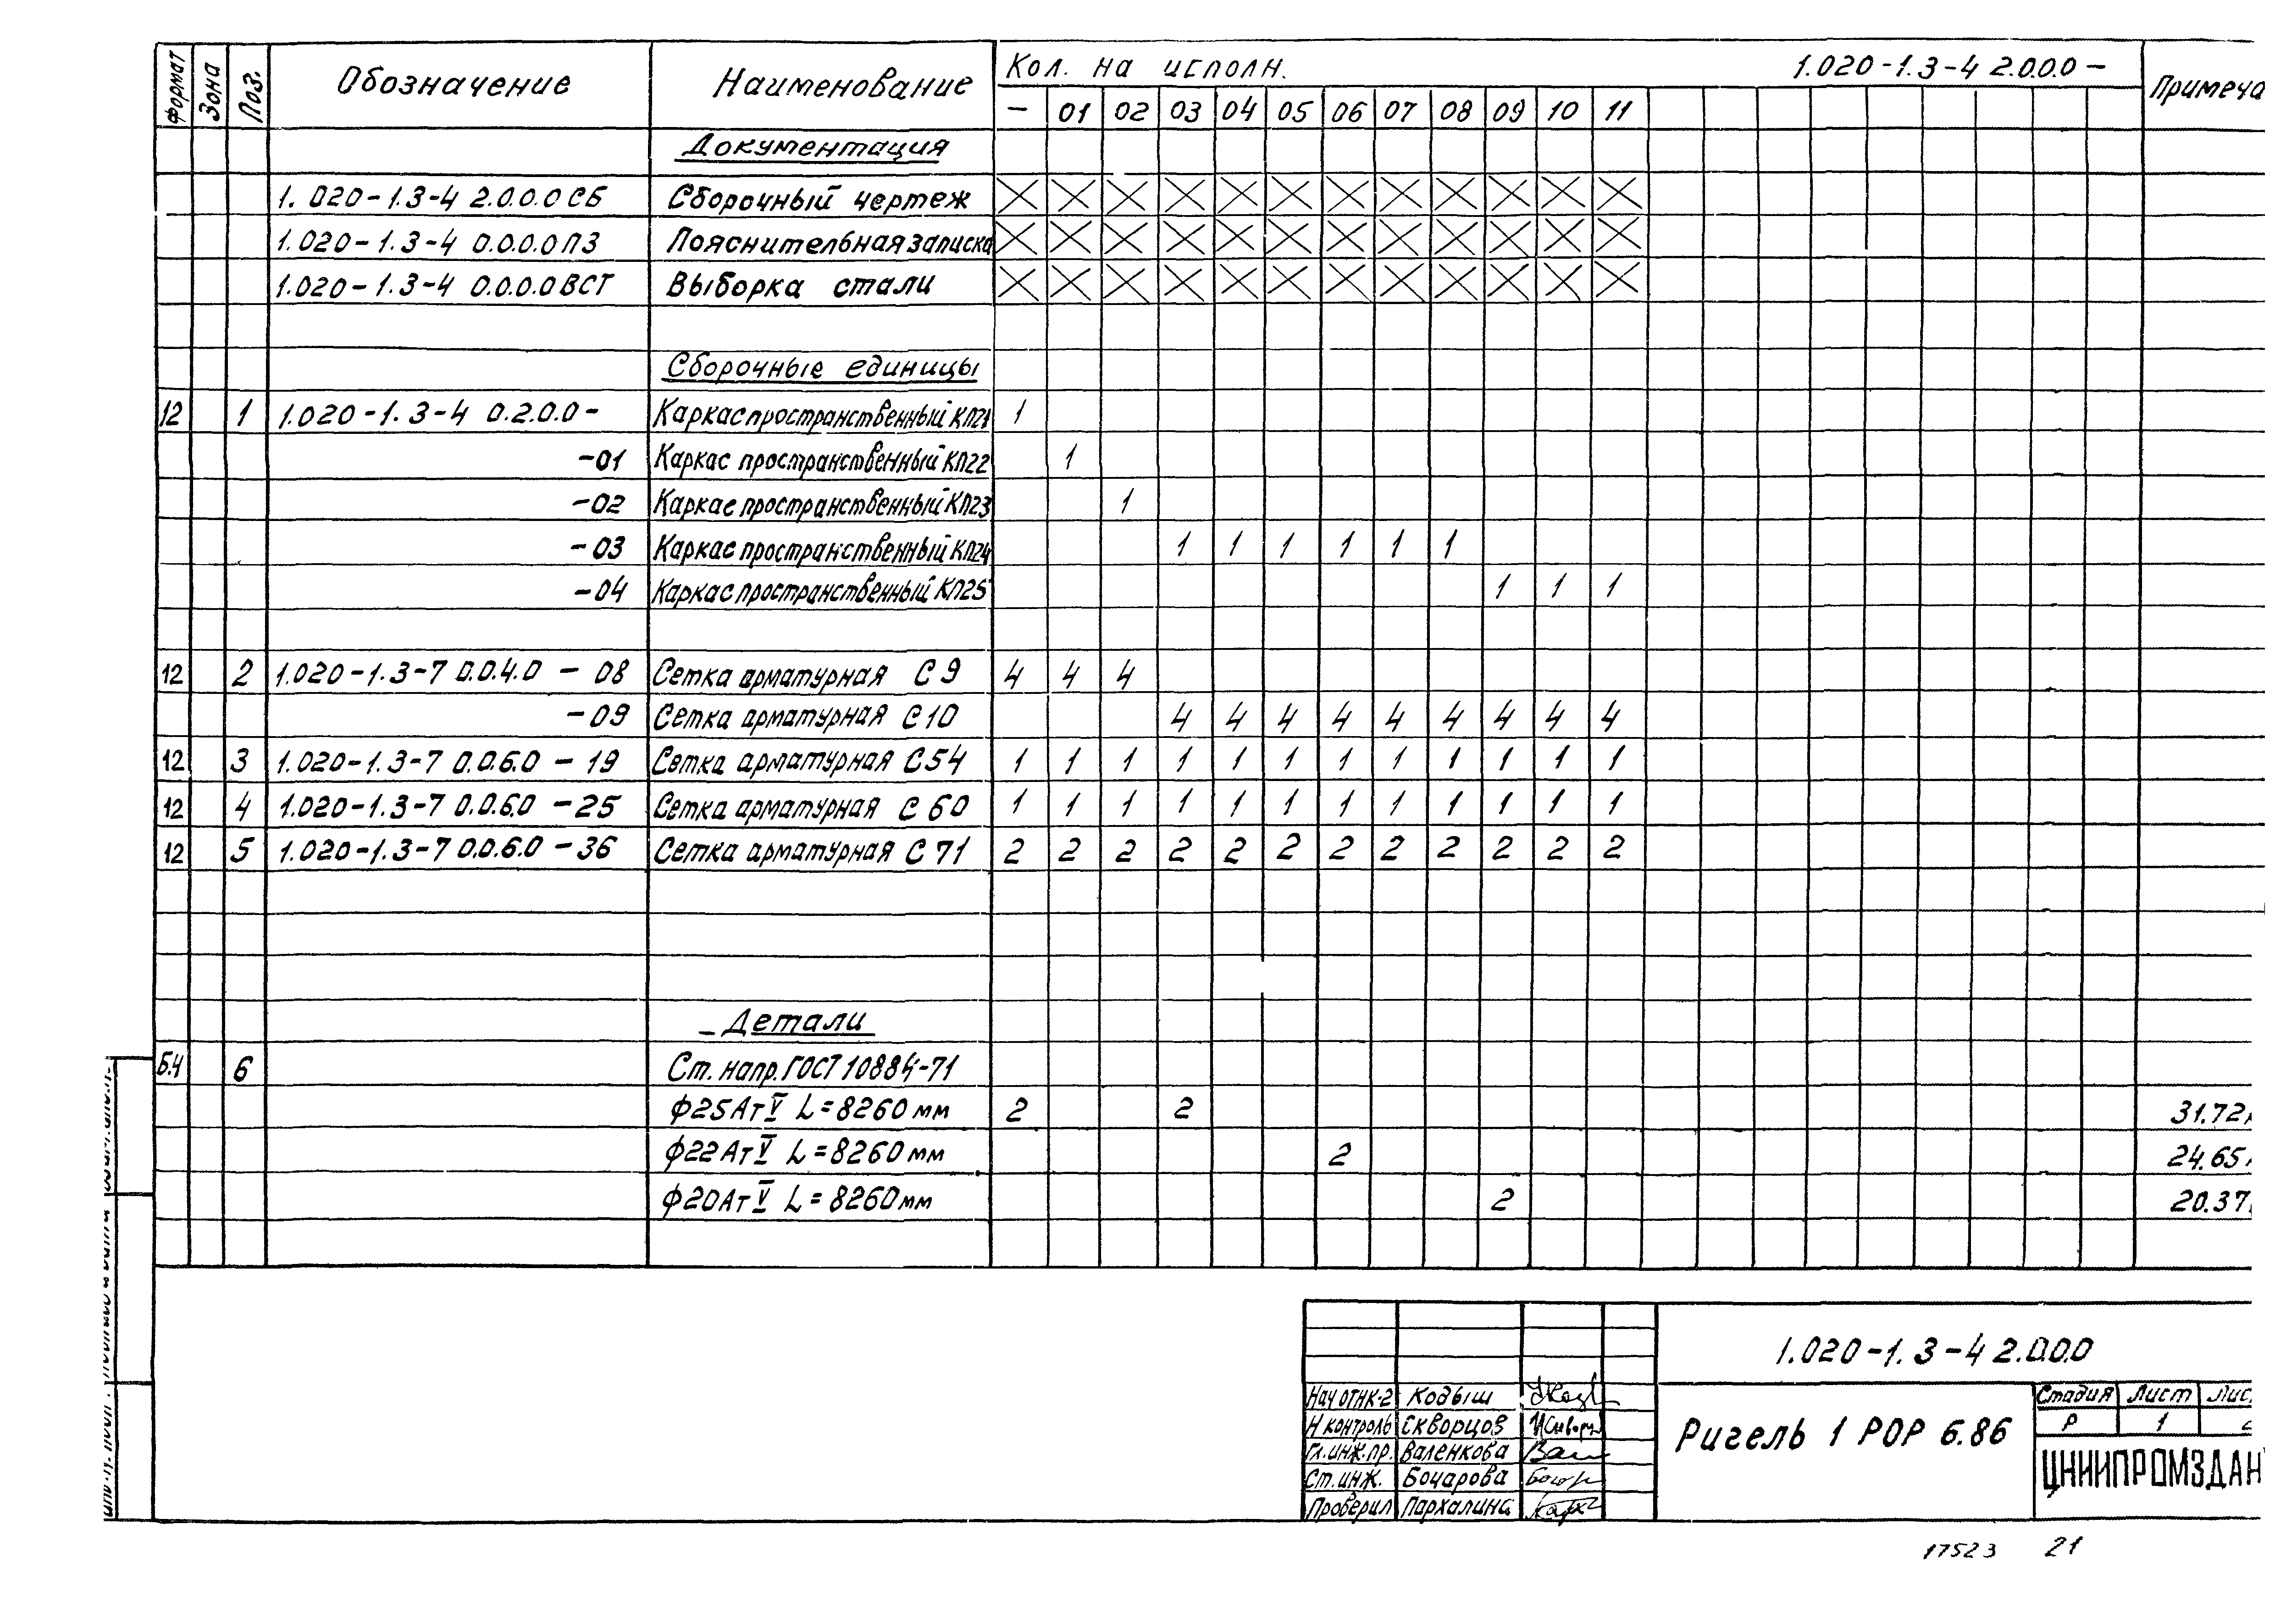 Формат Зона Поз. Обозначение Наименование Кол. на исполн. 1.020-1.3-4 2.0.0.0 — Примеча
— 01 02 03 04 05 06 07 08 09 10 11
Документация
1.020-1.3-4 2.0.0.0СБ Сборочный чертеж
1.020-1.3-4 0.0.0.0ПЗ Пояснительная записка
1.020-1.3-4 0.0.0.0ВСТ Выборка стали
Сборочные единицы
12 1 1.020-1.3-4 0.2.0.0- Каркас пространственный КП21 1
-01 Каркас пространственный КП22 1
-02 Каркас пространственный КП23 1
-03 Каркас пространственный КП24 1 1 1 1 1 1
-04 Каркас пространственный КП25 1 1 1
12 2 1.020-1.3-7 0.0.4.0 - 08 Сетка арматурная С9 4 4 4
-09 Сетка арматурная С10 4 4 4 4 4 4 4 4 4
12 3 1.020-1.3-7 0.0.6.0 - 19 Сетка арматурная С54 1 1 1 1 1 1 1 1 1 1 1 1
12 4 1.020-1.3-7 0.0.6.0 - 25 Сетка арматурная С60 1 1 1 1 1 1 1 1 1 1 1 1
12 5 1.020-1.3-7 0.0.6.0 - 36 Сетка арматурная С71 2 2 2 2 2 2 2 2 2 2 2 2
Детали
Б.Ч 6 Ст. напр. ГОСТ 10884-71
ф25АтV L=8260мм 2 2 31.72
ф22АтV L=8260мм 2 24.65
ф20АтV L=8260мм 2 20.37
1.020-1.3-4 2.0.0.0
Нач ОТНК-2 Кодыш
Н контроль Скворцов
Гл.инж.пр. Валенкова
Ст.инж. Бочарова
Проверил Пархалина
Ригель 1 РОР 6.86
Стадия Лист Лис
Р 1
ЦНИИПРОМЗДАН
17523 21